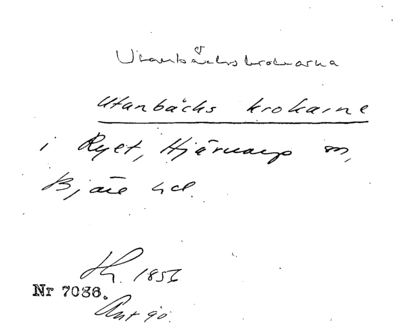 Utanbäckskrokarna
Utanbäcks krokarne
i Ryet, Hjärnarp sn,
Bjäre hd.
Th. 1856
Nr 7086.
Ant 90.